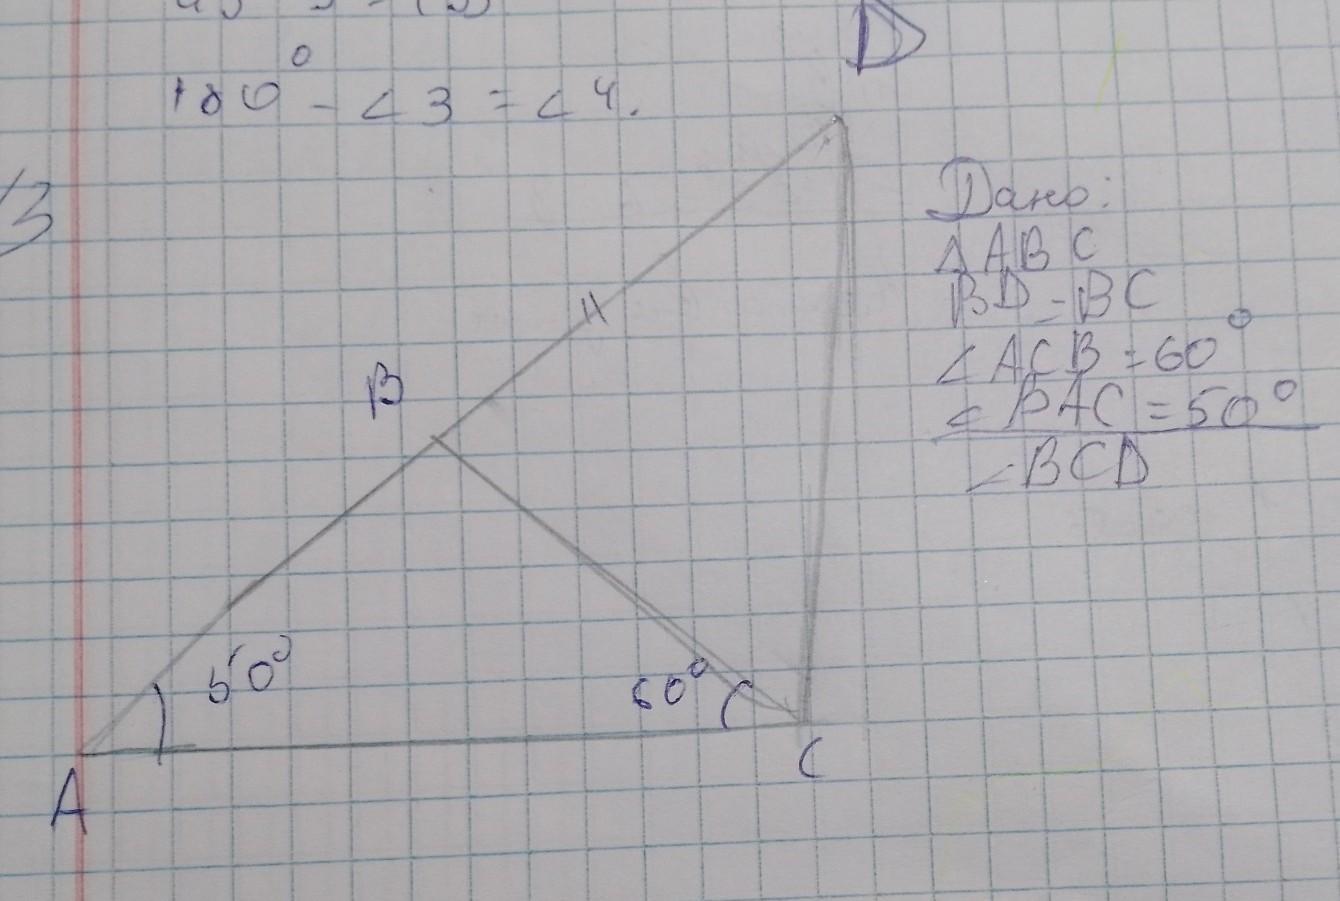 180° - ∠3 = ∠4.
3
D
Дано:
△ABC
BD = BC
∠ACB = 60°
∠BAC = 50°
∠BCD
B
50°
60°
A
C